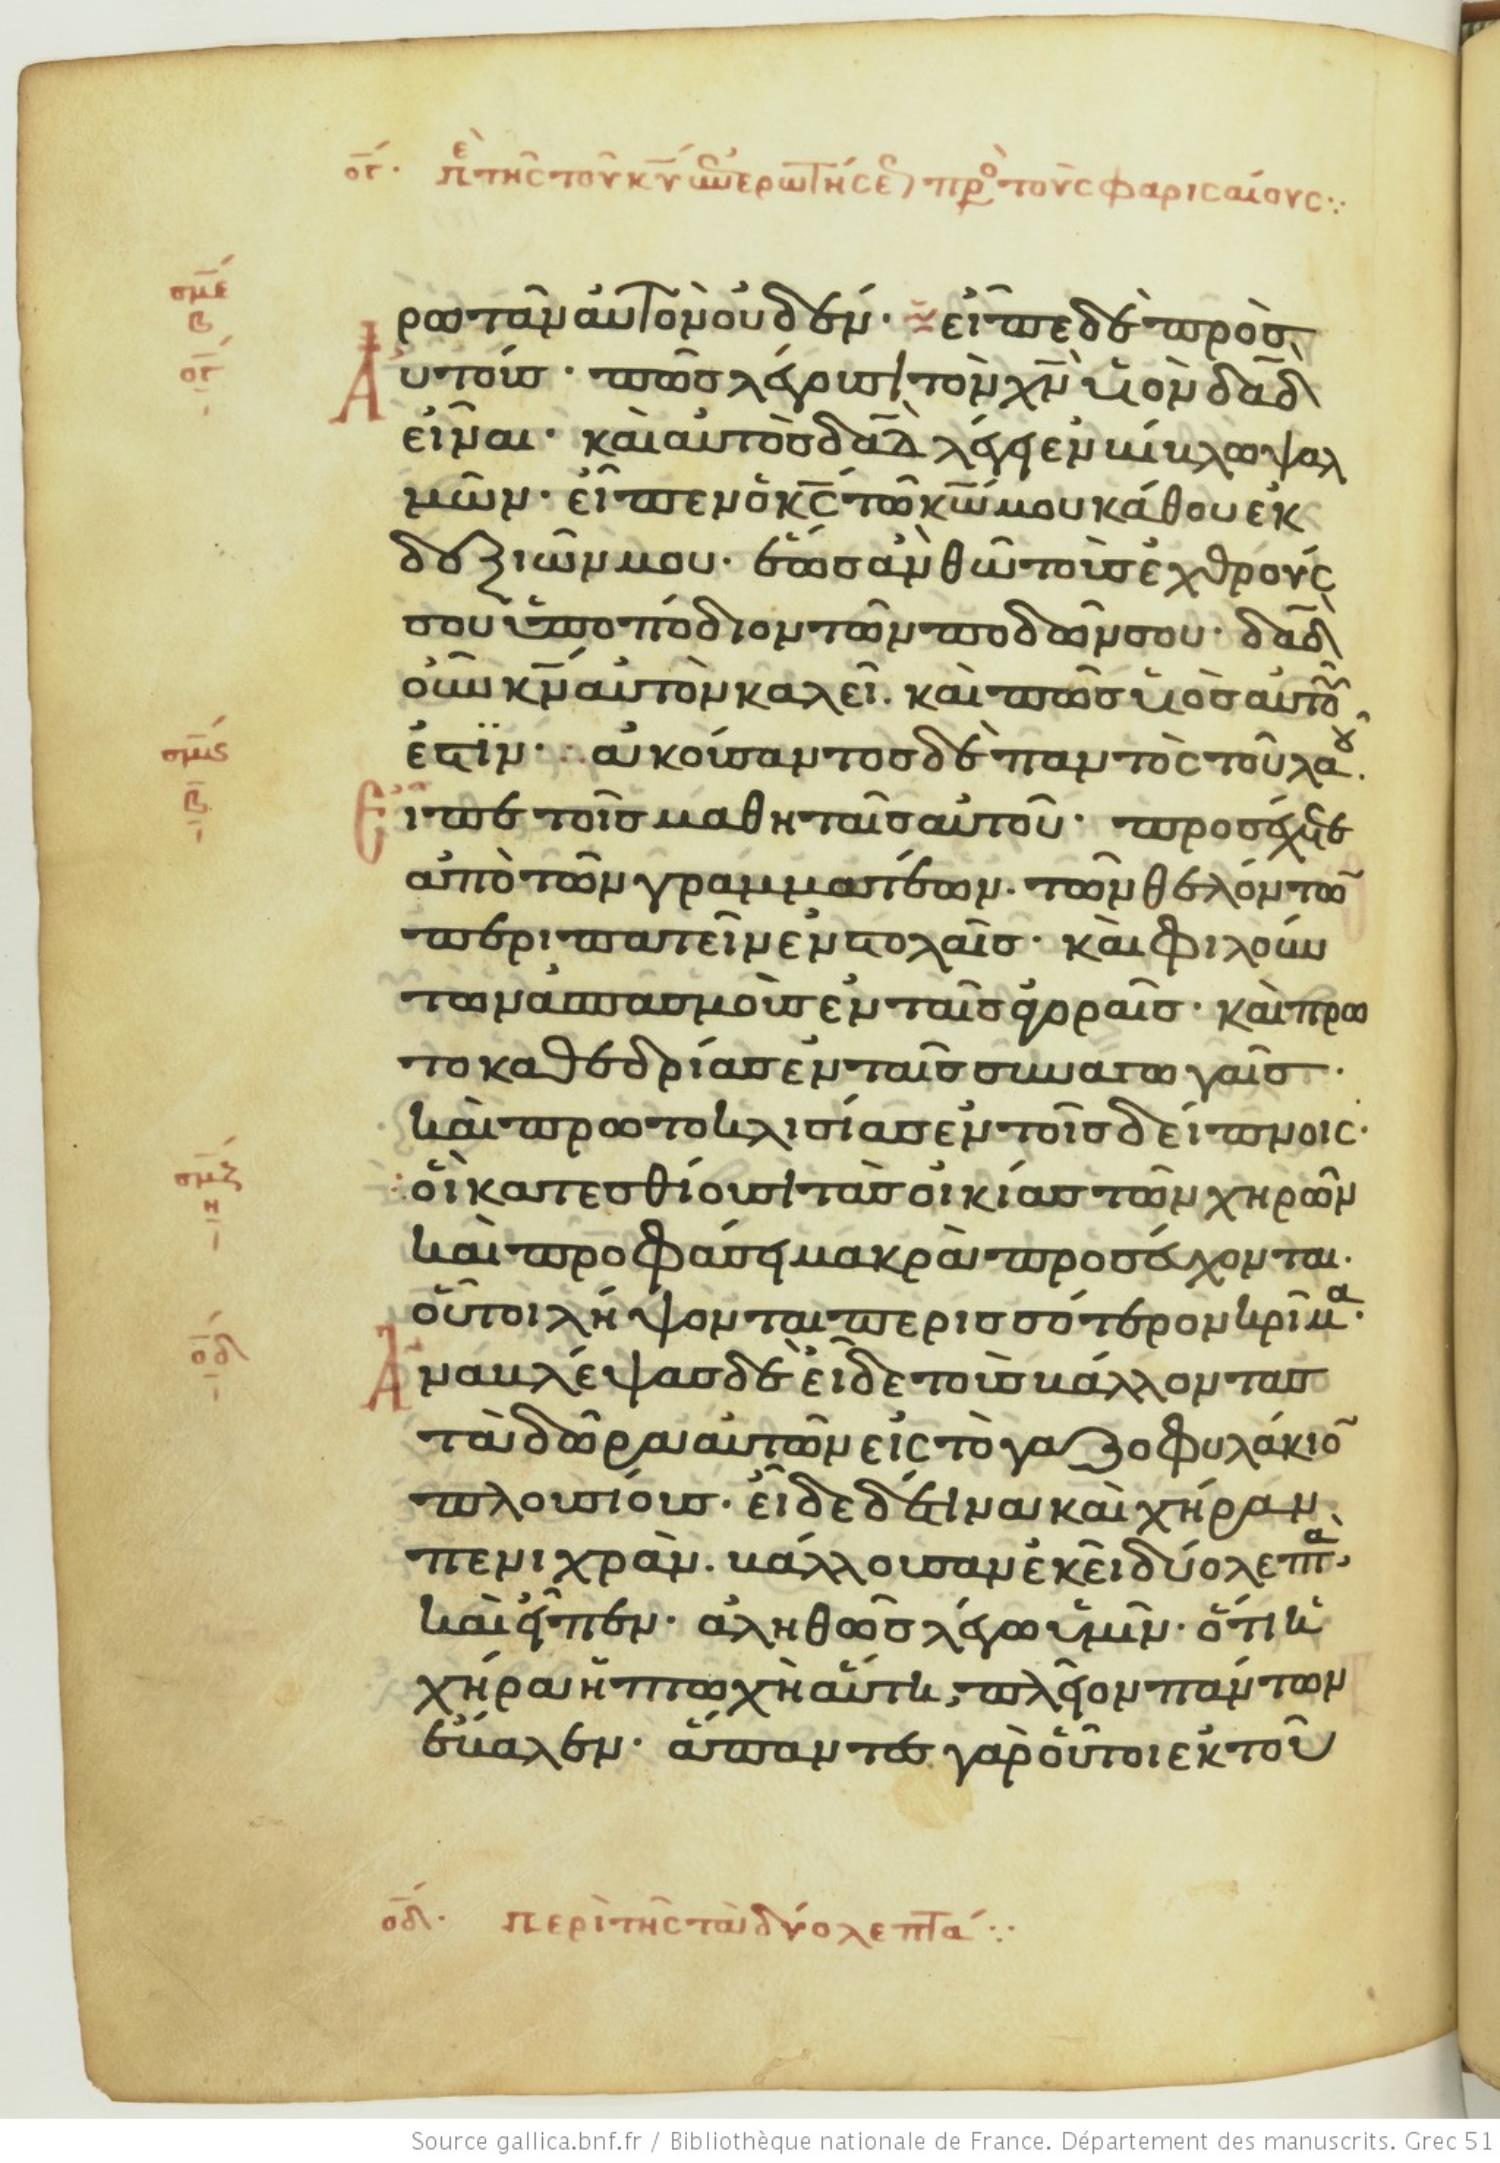 ογ. περὶ τῆς τοῦ κυ ἐπερωτήσεως πρὸς τοὺς φαρισαίους
σμε
β
ογ
ρωτᾶν αὐτὸν οὐδέν · εἶπε δὲ πρὸς
Αὐτούς · πῶς λέγουσι τὸν χν υἱὸν δαδ
εἶναι · καὶ αὐτὸς δαδ λέγει ἐν βίβλω ψαλ
μῶν · εἶπεν ὁ κς τῶ κω μου κάθου ἐκ
δεξιῶν μου · ἕως ἂν θῶ τοὺς ἐχθρούς
σου ὑποπόδιον τῶν ποδῶν σου · δαδ
οὖν κν αὐτὸν καλεῖ · καὶ πῶς υἱὸς αὐτοῦ
σμς
β
ἐστϊν · ἀκούσαντος δὲ παντὸς τοῦ λαοῦ.
Εἶπε τοῖς μαθηταῖς αὐτοῦ · προσέχετε
ἀπὸ τῶν γραμματέων · τῶν θελόντων
περιπατεῖν ἐν στολαῖς · καὶ φιλούν
των ἀσπασμοὺς ἐν ταῖς ἀγοραῖς · καὶ πρω
τοκαθεδρίας ἐν ταῖς συναγωγαῖς ·
καὶ πρωτοκλισίας ἐν τοῖς δείπνοις ·
σμζ
οἳ κατεσθίουσι τὰς οἰκίας τῶν χηρῶν
καὶ προφάσει μακρὰ προσεύχονται ·
οὗτοι λήψονται περισσότερον κρῖμα ·
οδ
Ἀναβλέψας δὲ εἶδε τοὺς βάλλοντας
τὰ δῶρα αὐτῶν εἰς τὸ γαζοφυλάκιον
πλουσίους · εἶδε δέ τινα καὶ χήραν
πενιχρὰν · βάλλουσαν ἐκεῖ δύο λεπτὰ ·
καὶ εἶπεν · ἀληθῶς λέγω ὑμῖν · ὅτι ἡ
χήρα ἡ πτωχὴ αὕτη, πλεῖον πάντων
ἔβαλεν · ἅπαντες γὰρ οὗτοι ἐκ τοῦ
οδ · περὶ τῆς τὰ δύο λεπτά
Source gallica.bnf.fr / Bibliothèque nationale de France. Département des manuscrits. Grec 51